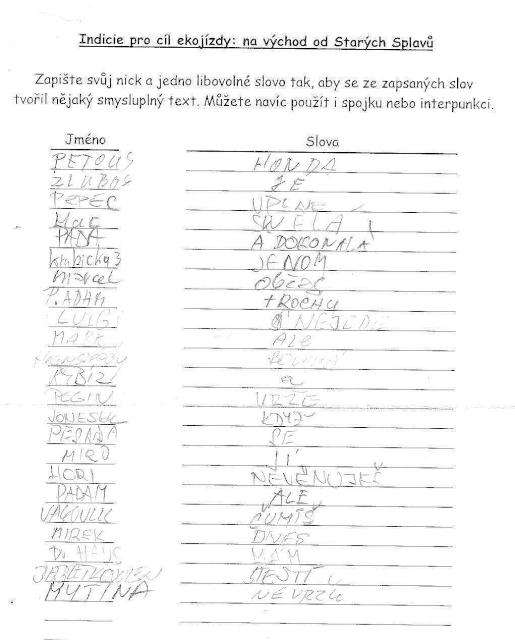 Indicie pro cíl ekojízdy: na východ od Starých Splavů
Zapište svůj nick a jedno libovolné slovo tak, aby se ze zapsaných slov
tvořil nějaký smysluplný text. Můžete navíc použít i spojku nebo interpunkci.
Jméno Slova
PETOUS HONDA
ZLUBOS JE
PEPEC ÚPLNĚ
SKVĚLÁ
PADA A DOKONALÁ
krabicka3 JENOM
marcel občas
P.ADAM tROCHU
LUIGI NEJEDE
MARK ALE
KYBIZ a
PEGIN VRŽE
JONESEK KDYŽ
PESADA SE
MIRO JÍ
HORI NEVĚNUJEŠ
PADAM ALE
ČUMÍŠ
MIREK DNES
MÁM
ŠTĚSTÍ
MYTINA NEVRZU